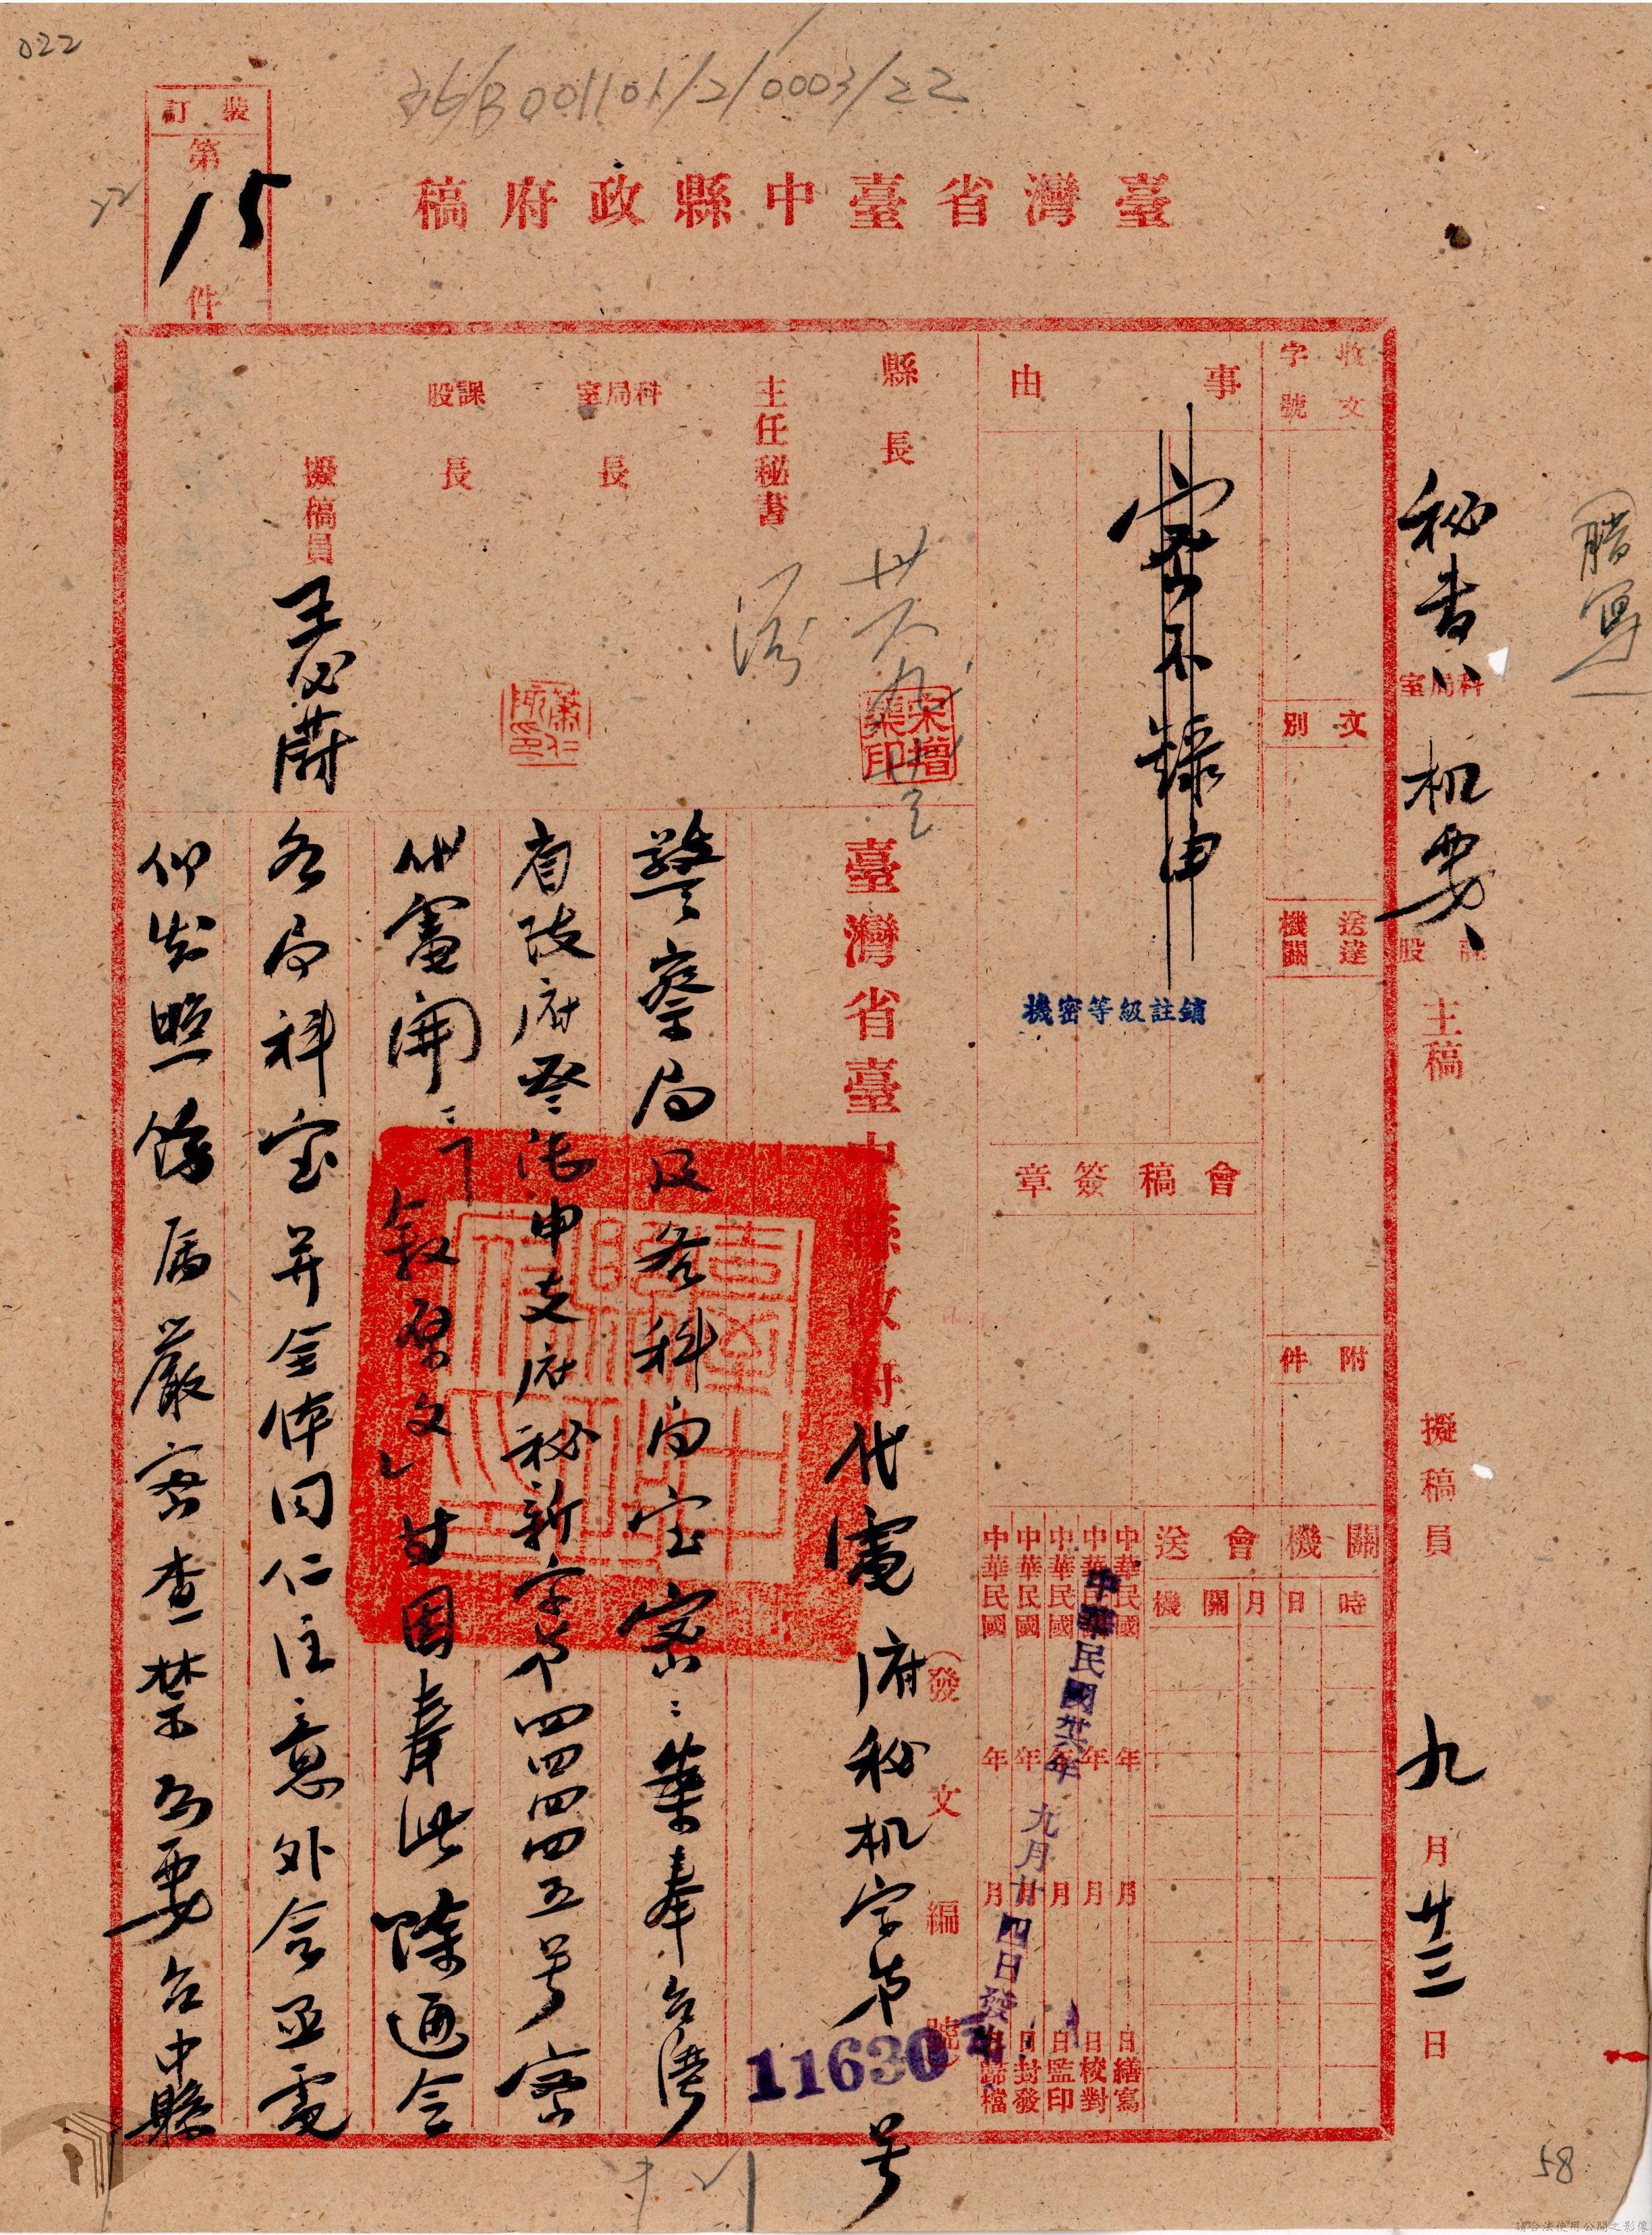 022
36/B001101/2/0003/22
裝訂
第
15
件
22
臺灣省臺中縣政府稿
謄寫
秘書
科局室
机要
課股
主稿
擬稿員
九月廿三日
收文字號
文別
送達機關
附件
事由
密不錄由
機密等級註銷
會稿簽章
關機會送
時日月關機
中華民國年月日繕寫
中華民國年月日校對
中華民國年月日監印
中華民國年月日封發
中華民國年月日歸檔
中華民國卅六年九月廿四日發
縣長
宋增榘印
主任秘書
科局室長
課股長
擬稿員
王必蔚
臺灣省臺中縣政府代電府秘机字第號
(發文編號)
11630
警察局及各科局室密：案奉台灣
省政府參漾申支府秘新字第四四四四五号密
代電開：「敘原文」甘因奉此除通令
各局科室并全体同仁注意外合亟電
仰知照飭屬嚴密查禁為要台中縣
58
請合法使用公開之影像